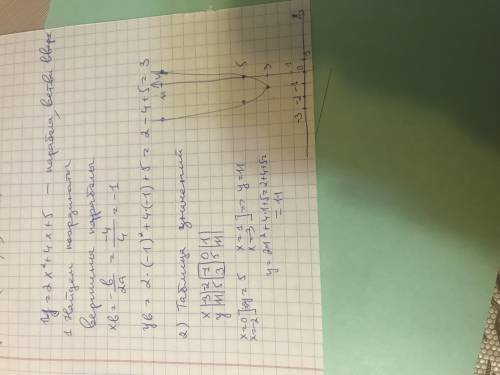 1y = 2x²+4x+5 – парабола, ветви вверх
1 Найдем координаты
вершины параболы
xв = -в/2а = -4/4 = -1
yв = 2·(-1)²+4(-1)+5 = 2-4+5=3
2) Таблица значений
x |3|2|7|0|1|
y |11|5|3|5|11|
x=0]=>y=5
x=-2
x=1 ]=> y=11
x=-3
y=2·1²+4·1+5=2+4+5=
= 11
y
11
5
3
1
-3 -2 -1 0 1
x